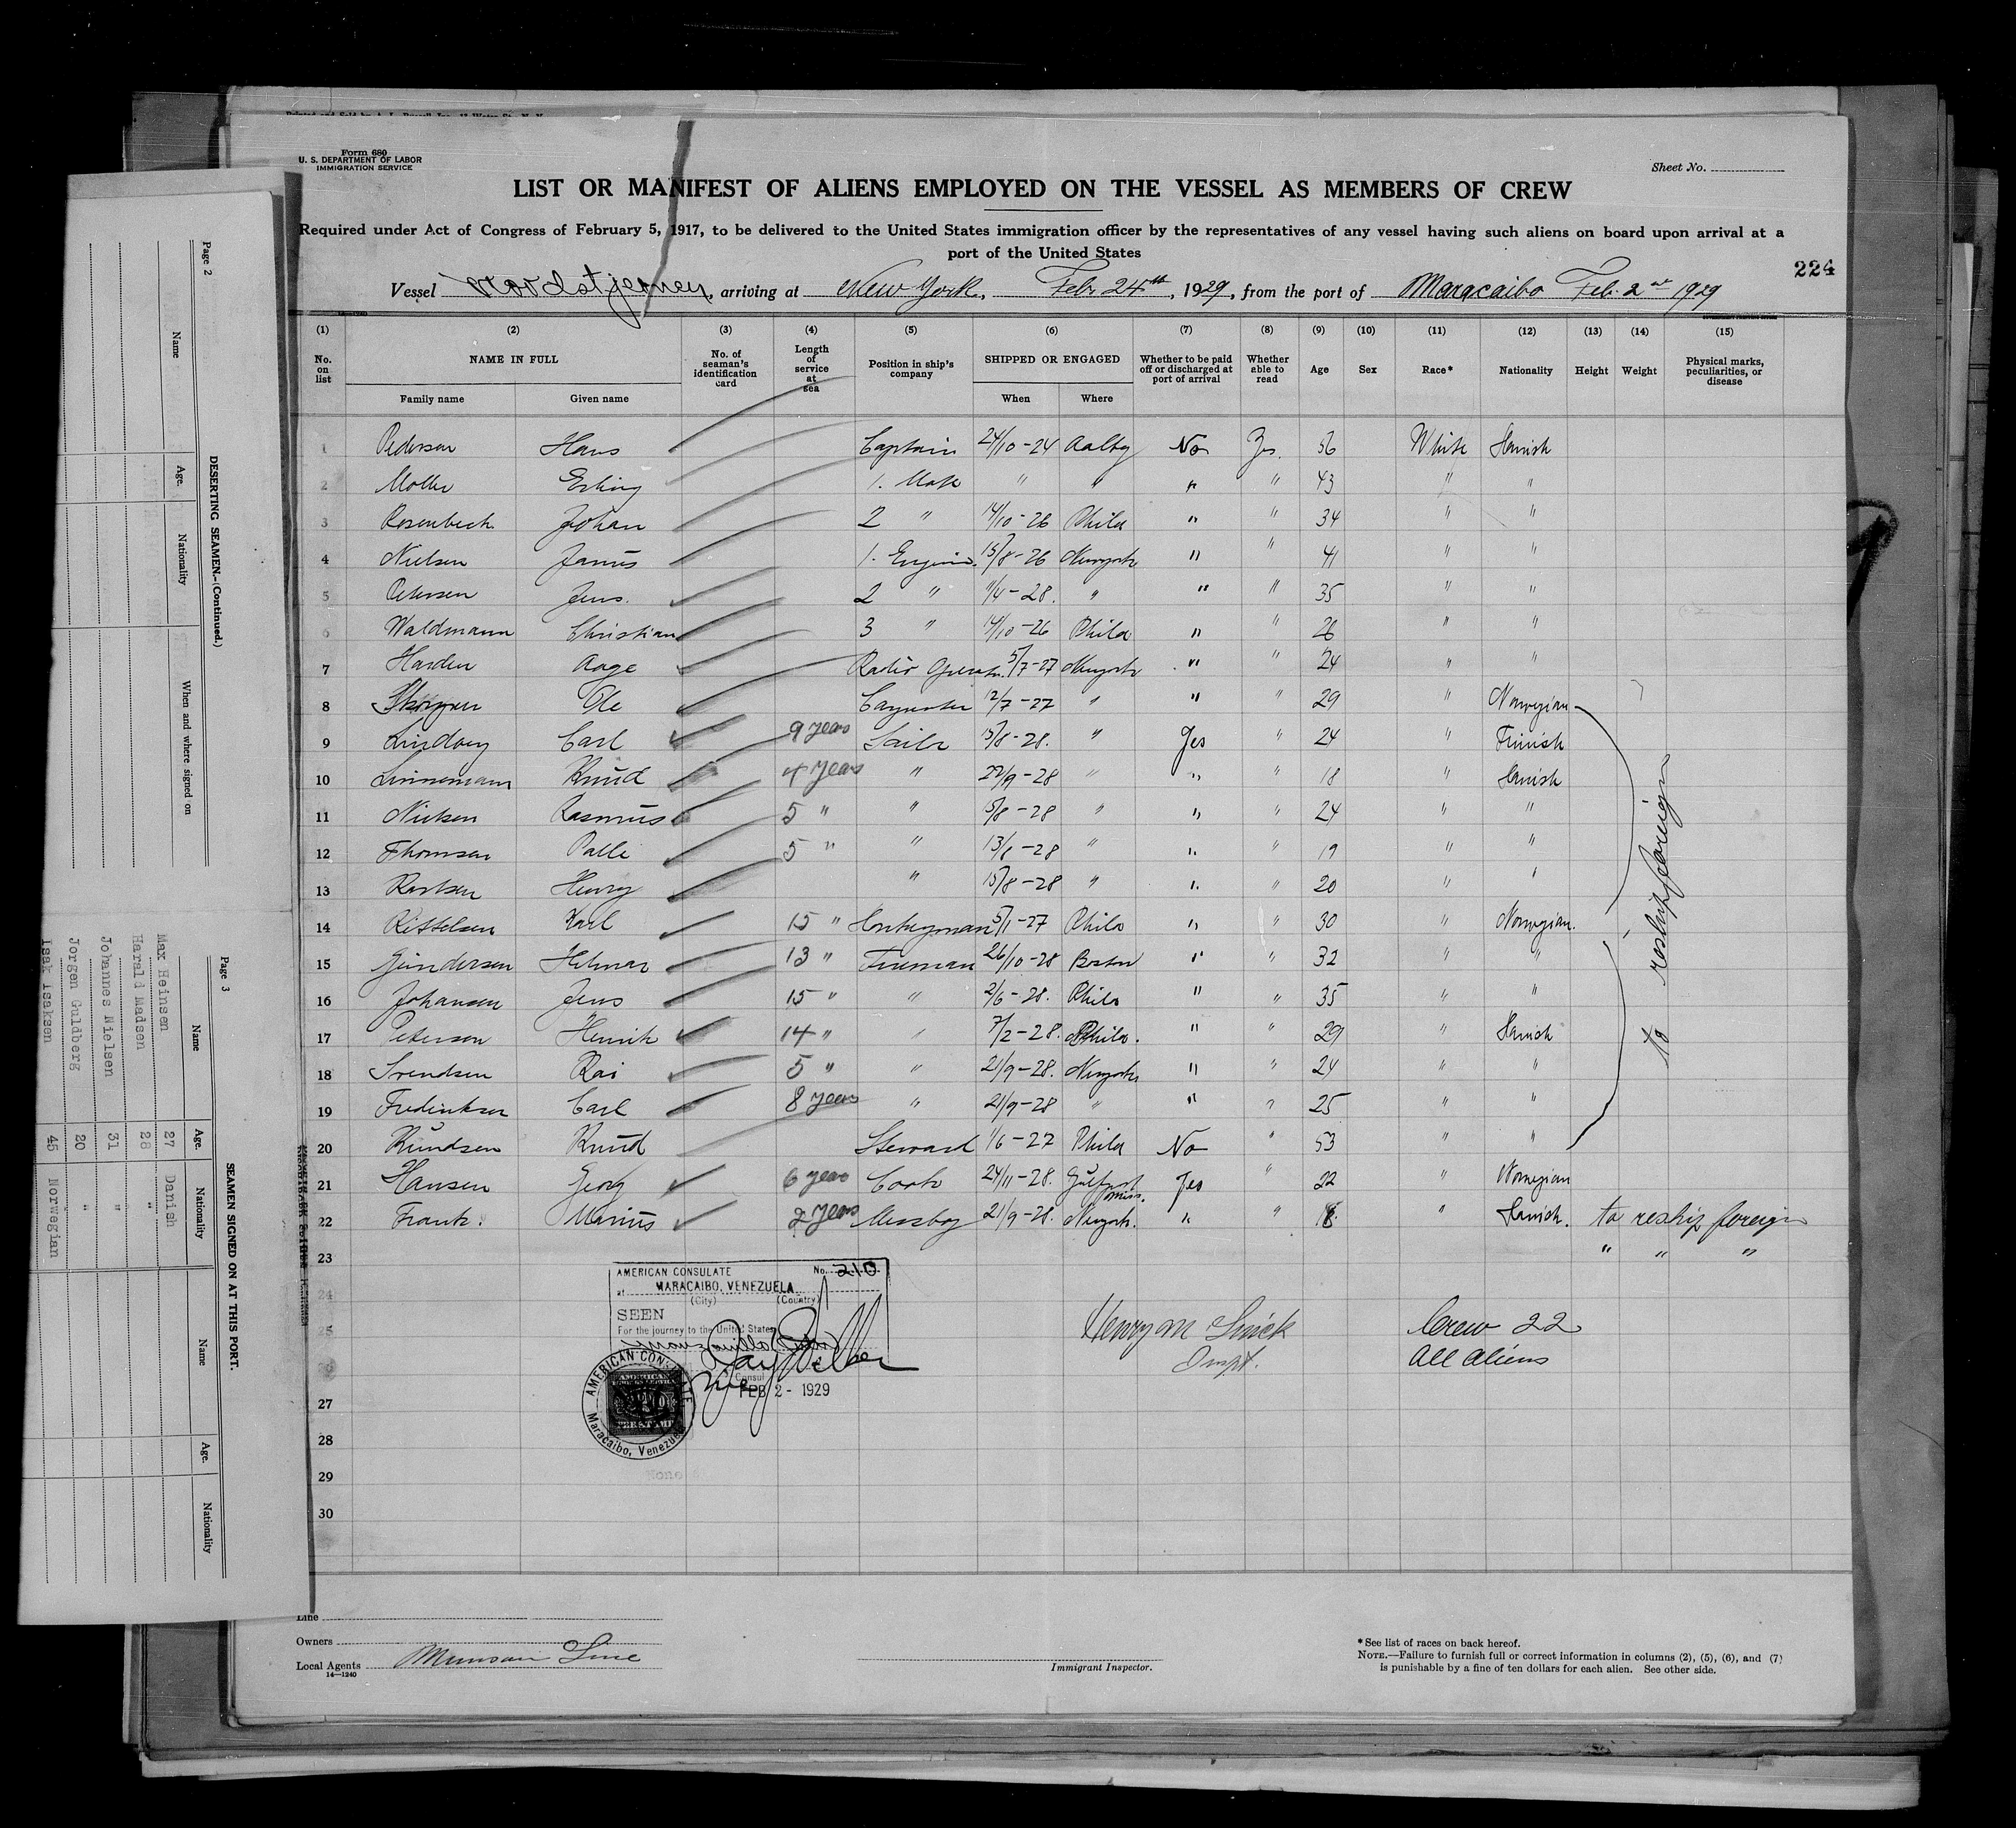 Form 680
U. S. DEPARTMENT OF LABOR
IMMIGRATION SERVICE
Sheet No.
LIST OR MANIFEST OF ALIENS EMPLOYED ON THE VESSEL AS MEMBERS OF CREW
Required under Act of Congress of February 5, 1917, to be delivered to the United States immigration officer by the representatives of any vessel having such aliens on board upon arrival at a
port of the United States
224
Vessel Nordstjernen, arriving at New York, Feb. 24th, 1929, from the port of Maracaibo Feb. 2nd 1929
(1) (2) (3) (4) (5) (6) (7) (8) (9) (10) (11) (12) (13) (14) (15)
No. on list NAME IN FULL No. of seaman's identification card Length of service at sea Position in ship's company SHIPPED OR ENGAGED Whether to be paid off or discharged at port of arrival Whether able to read Age Sex Race* Nationality Height Weight Physical marks, peculiarities, or disease
Family name Given name When Where
1 Pedersen Hans Captain 24/10-24 Aalbg No Yes 56 White Danish
2 Moller Erling 1. Mate " " " " 43 " "
3 Rosenbeck Johan 2 " 14/10-26 Phila " " 34 " "
4 Nielsen Janus 1. Engin. 15/8-26 Newyork " " 41 " "
5 Petersen Jens. 2 " 11/4-28. " " " 35 " "
6 Waldmann Christian 3 " 14/10-26 Phila " " 26 " "
7 Harden Aage Radio Operatr. 5/7-27 Newyork " " 24 " "
8 Ole Carpenter 12/7-27 " " " 29 " Norwegian
9 Lindberg Carl 9 years Sailr 15/8-28. " Yes " 24 " Finish
10 Linnemann Knud 4 years " 22/9-28 " " " 18 " Danish
11 Nielsen Rasmus 5 " " 15/8-28 " " " 24 " "
12 Thomsen Palle 5 " " 13/8-28 " " " 19 " "
13 Henry " 15/8-28 " " " 20 " "
14 Kittelsen Karl 15 " Donkeyman 5/1-27 Phila " " 30 " Norwegian.
15 Gundersen Hilmar 13 " Fireman 26/10-28 Boston " " 32 " "
16 Johansen Jens 15 " " 2/6-28. Phila " " 35 " "
17 Petersen Henrik 14 " " 7/2-28. Phila. " " 29 " Danish
18 Svendsen Kai 5 " " 21/9-28. Newyork " " 24 " "
19 Frederiksen Carl 8 years " 21/9-28 " " " 25 " "
20 Knudsen Knud Steward 1/6-27 Phila No " 53 " "
21 Hansen Georg 6 years Cook 24/11-28. Gulfport miss. Yes " 22 " Norwegian
22 Frank. Marius 2 years Messboy 21/9-28. Newyork. " " 18. " Danish. to reship foreign
23 " " "
to reship foreign
24
25
26
27
28
29
30
AMERICAN CONSULATE No. 210
at MARACAIBO, VENEZUELA
(City) (Country)
SEEN
For the journey to the United States
Consul
FEB 2 - 1929
AMERICAN CONSULATE
Maracaibo, Venezuela
AMERICAN
FEE STAMP
None
Henry M
Inspt.
Crew 22
All Aliens
Line
Owners
Local Agents Munson Line
14—1240
Immigrant Inspector.
*See list of races on back hereof.
NOTE.—Failure to furnish full or correct information in columns (2), (5), (6), and (7)
is punishable by a fine of ten dollars for each alien. See other side.
Page 2
DESERTING SEAMEN.—(Continued.)
Name Age. Nationality When and where signed on
Page 3
SEAMEN SIGNED ON AT THIS PORT.
Name Age. Nationality Name Age. Nationality
Max Heinsen 27 Danish
Harald Madsen 28 "
Johannes Nielsen 31 "
Jorgen Guldberg 20 "
Isak Isaksen 45 Norwegian